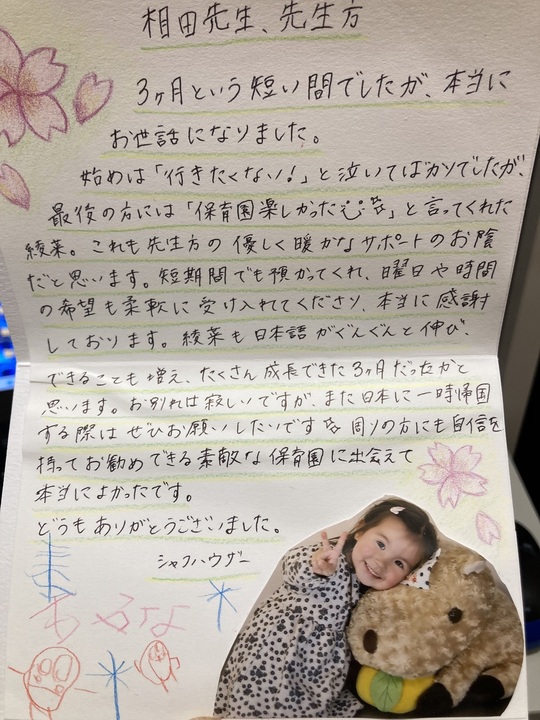 相田先生、先生方
3ヶ月という短い間でしたが、本当に
お世話になりました。
始めは「行きたくない!」と泣いてばかりでしたが、
最後の方には「保育園楽しかった」と言ってくれた
綾菜。これも先生方の優しく暖かなサポートのお陰
だと思います。短期間でも預かってくれ、曜日や時間
の希望も柔軟に受け入れてくださり、本当に感謝
しております。綾菜も日本語がぐんぐんと伸び、
できることも増え、たくさん成長できた3ヶ月だったかと
思います。お別れは寂しいですが、また日本に一時帰国
する際はぜひお願いしたいです 周りの方にも自信を
持ってお勧めできる素敵な保育園に出会えて
本当によかったです。
どうもありがとうございました。
シャフハウザー
な